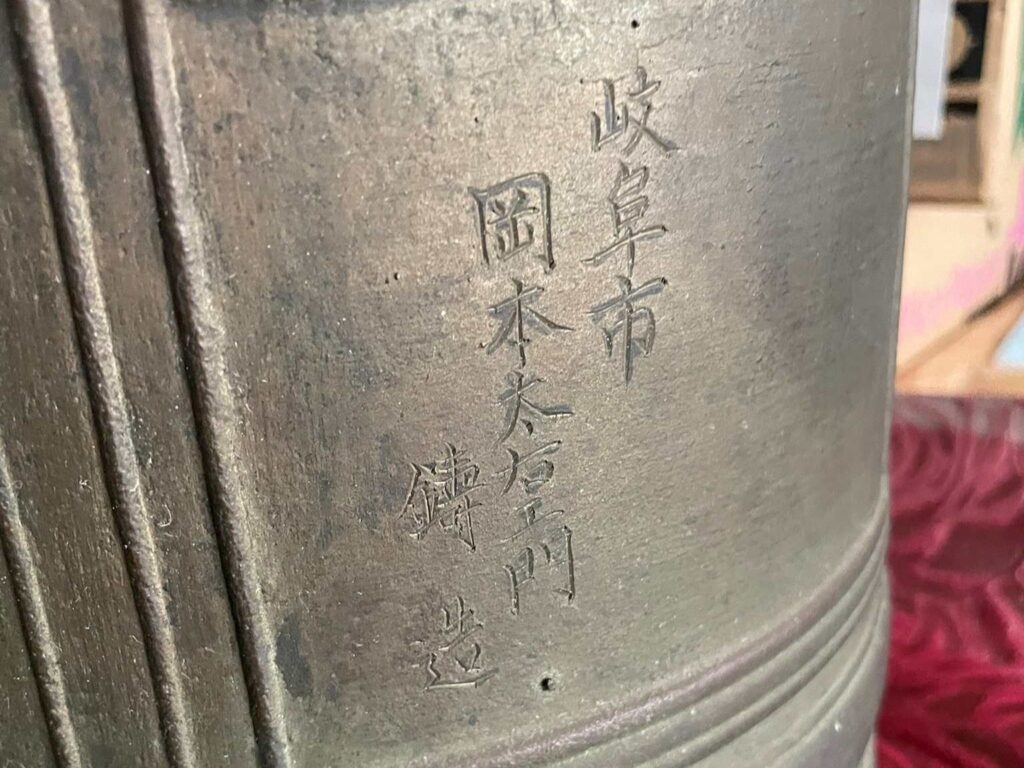 岐阜市
岡本太右エ門
鑄造